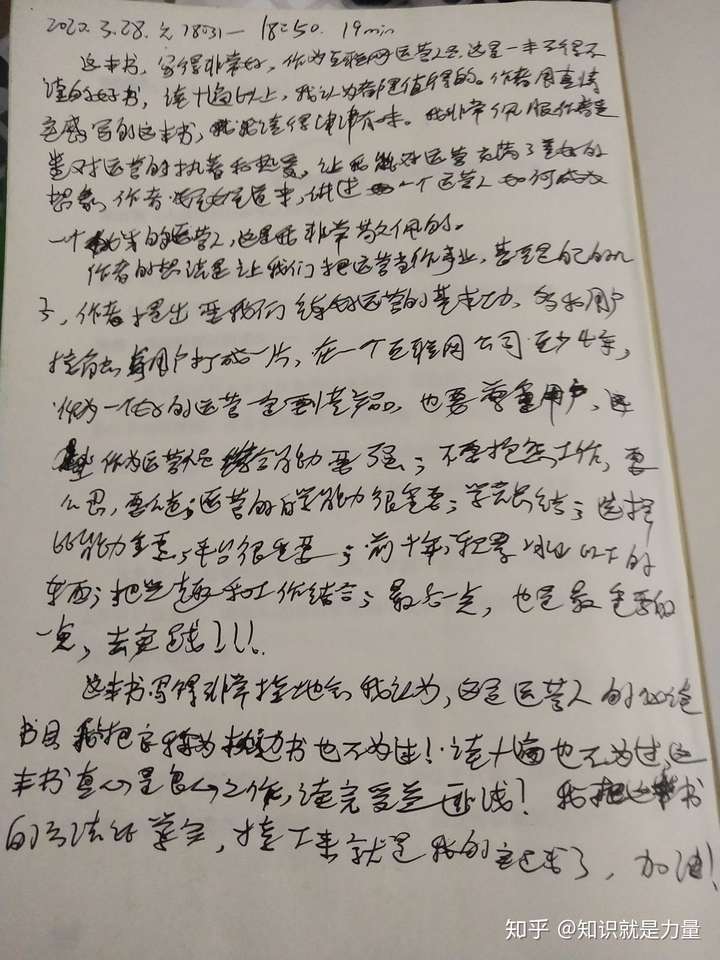 2022.3.28. 18:31— 18:50. 19min
这本书,写得非常好,作为互联网运营人员,这是一本不得不
读的好书,读十遍以上,我认为都是值得的。作者用真情
实感写的这本书,我读得津津有味。我非常佩服作者
对运营的执着和热爱,让我能对运营充满了美好的
想象,作者娓娓道来,讲述一个运营人如何成为
一个优秀的运营人,这是我非常敬佩的。
作者的想法是让我们把运营当作事业,甚至是自己的儿
子,作者提出要我们练好运营的基本功,多和用户
接触,与用户打成一片,在一个互联网公司至少4年,
作为一个好的运营一定要到懂产品,也要尊重用户,这
作为运营人员综合能力要强;不要抱怨工作,要
么忍,要么走;运营的自学能力很重要;学完总结;选择
比能力重要,平台很重要;前十年积累以上的
东西;把兴趣和工作结合;最后一点,也是最重要的
一点,去实践!!!
这本书写得非常接地气,我认为,这是运营人的必读
书目,我把它称为教科书也不为过!读十遍也不为过,这
本书真心是良心之作,读完受益匪浅!我把这本书
的方法论掌握,接下来就是我的实践了,加油!
知乎 @知识就是力量